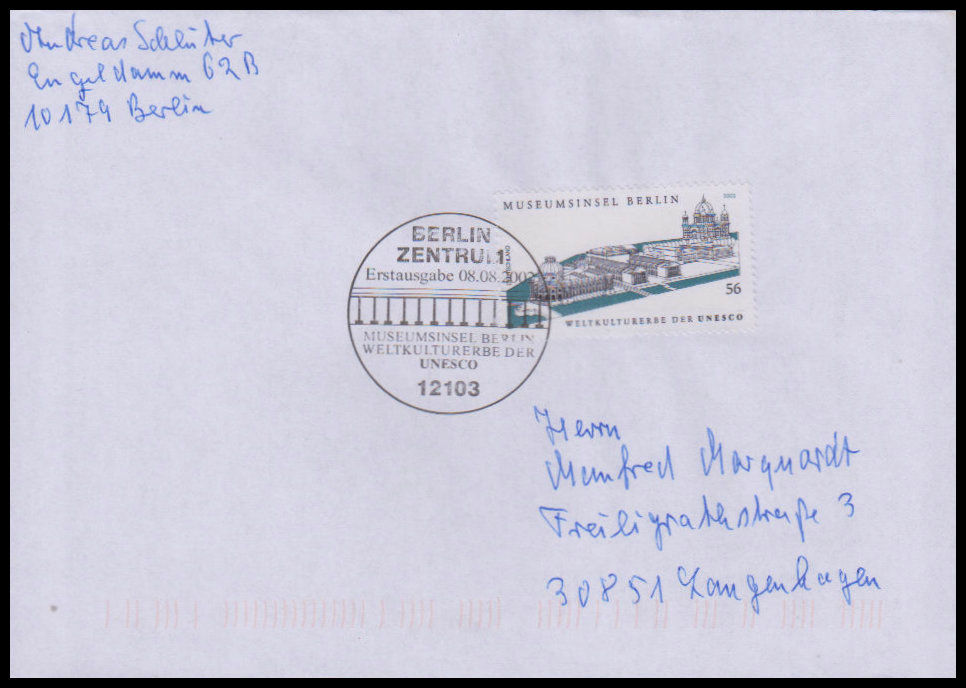 Andreas Schlüter
Engeldamm 62B
10179 Berlin
MUSEUMSINSEL BERLIN
2002
DEUTSCHLAND
56
WELTKULTURERBE DER UNESCO
BERLIN
ZENTRUM
Erstausgabe 08.08.2002
MUSEUMSINSEL BERLIN
WELTKULTURERBE DER
UNESCO
12103
Herrn
Manfred Marquardt
Freiligrathstraße 3
30851 Langenhagen